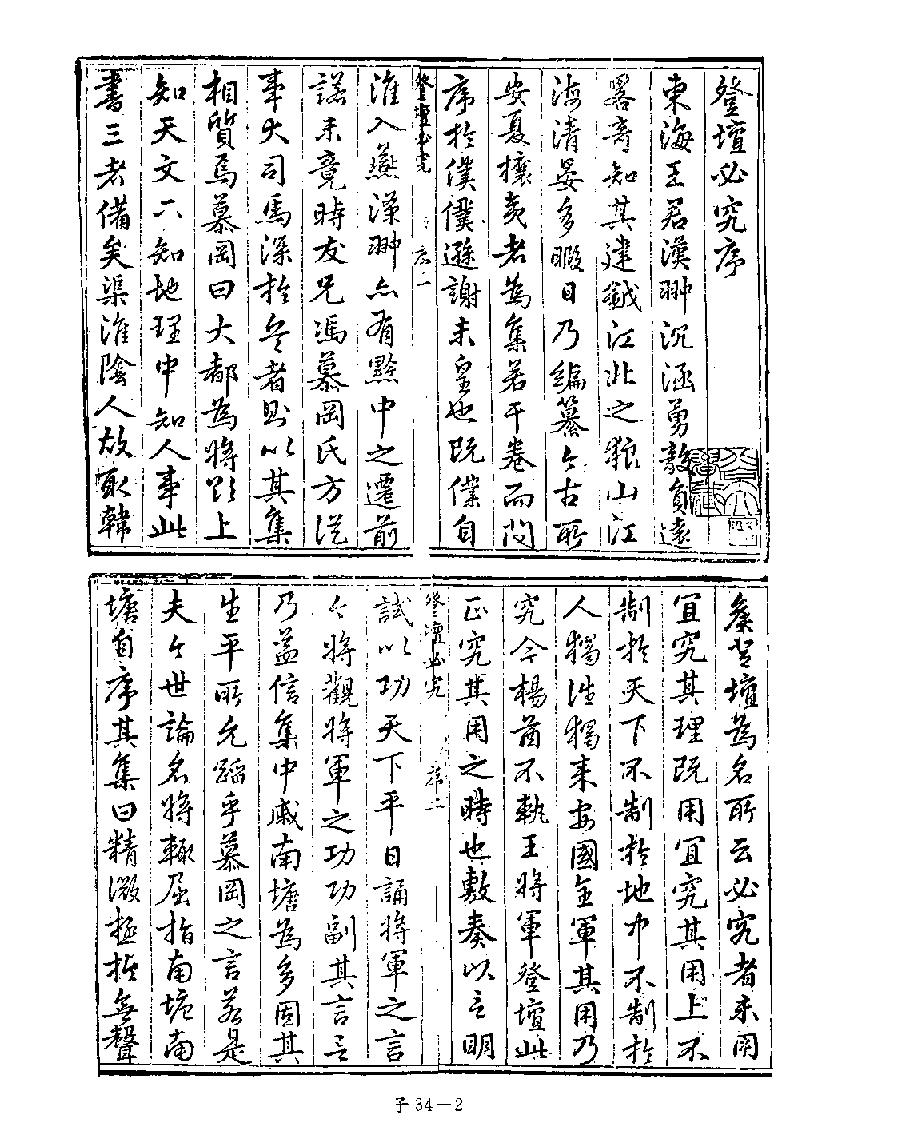 登壇必究序
東海王君漢翀沉涵勇敢負遠
畧奇知其建鉞江北之狼山江
海清晏多暇日乃編纂今古所
安夏攘夷者為集若干卷而問
序於僕僕遜謝未皇也既僕自
登壇必究 序一
淮入燕漢翀亦有黔中之遷前
諾未竟時友兄馮慕岡氏方從
事大司馬深於兵者則以其集
相質焉慕岡曰大都為將貴上
知天文下知地理中知人事此
書三者備矣渠淮陰人故取韓
矦登壇為名所云必究者未用
宜究其理既用宜究其用上不
制於天下不制於地中不制於
人獨往獨來安國全軍其用乃
究今楊酋不執王將軍登壇此
正究其用之時也敷奏以言明
登壇必究 序二
試以功天下平日誦將軍之言
今將觀將軍之功功副其言言
乃益信集中戚南塘為多因其
生平所允蹈乎慕岡之言若是
夫今世論名將輒屈指南塘南
塘自序其集曰精微極於無聲
子34-2